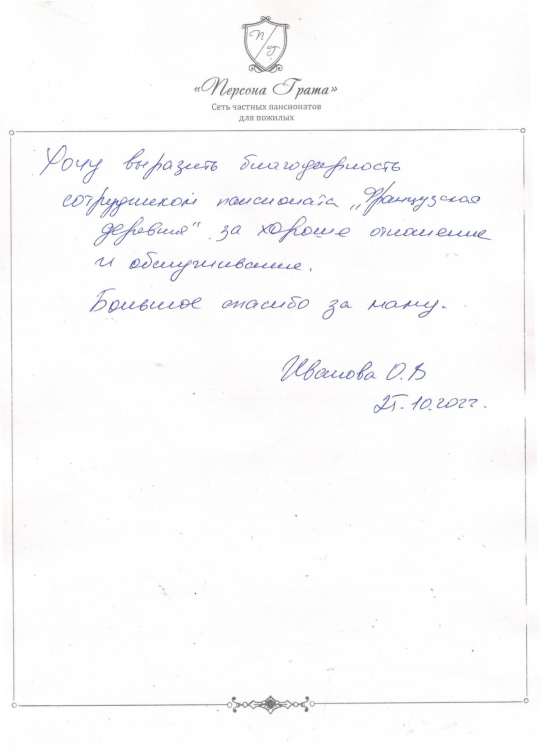 П Г
«Персона Грата»
Сеть частных пансионатов
для пожилых
Хочу выразить благодарность
сотрудникам пансионата „Французская
деревня" за хорошее отношение
и обслуживание.
Большое спасибо за маму.
Иванова О.В
25.10.2022.